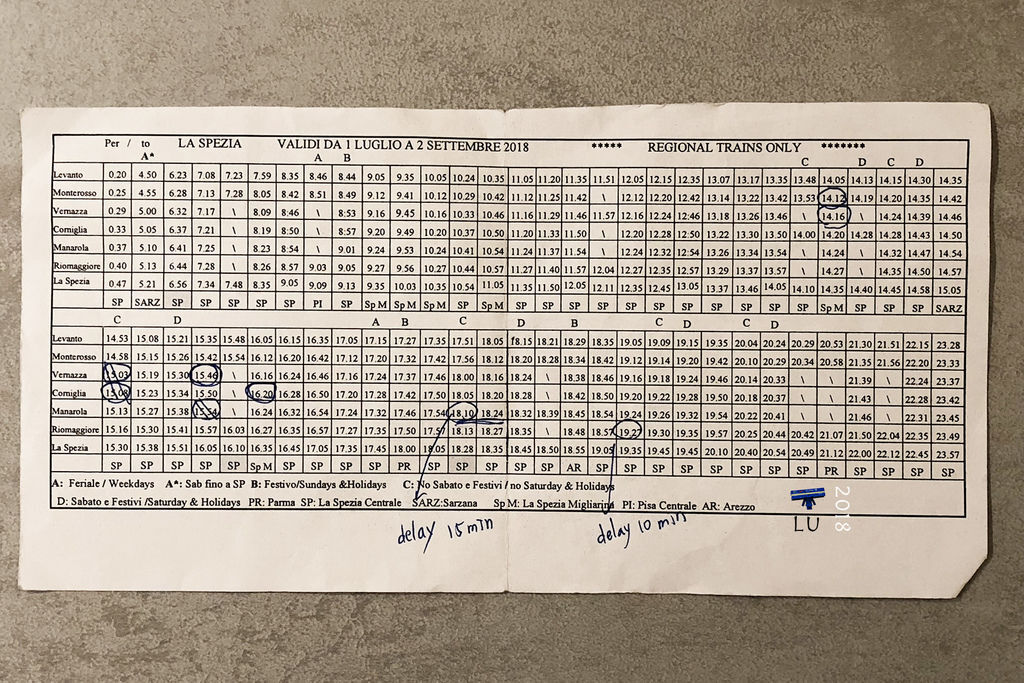 Per / to LA SPEZIA VALIDI DA 1 LUGLIO A 2 SETTEMBRE 2018 ***** REGIONAL TRAINS ONLY *******
A* A B C D C D
Levanto 0.20 4.50 6.23 7.08 7.23 7.59 8.35 8.46 8.44 9.05 9.35 10.05 10.24 10.35 11.05 11.20 11.35 11.51 12.05 12.15 12.35 13.07 13.17 13.35 13.48 14.05 14.13 14.15 14.30 14.35
Monterosso 0.25 4.55 6.28 7.13 7.28 8.05 8.42 8.51 8.49 9.12 9.41 10.12 10.29 10.42 11.12 11.25 11.42 \ 12.12 12.20 12.42 13.14 13.22 13.42 13.53 14.12 14.19 14.20 14.35 14.42
Vernazza 0.29 5.00 6.32 7.17 \ 8.09 8.46 \ 8.53 9.16 9.45 10.16 10.33 10.46 11.16 11.29 11.46 11.57 12.16 12.24 12.46 13.18 13.26 13.46 \ 14.16 \ 14.24 14.39 14.46
Corniglia 0.33 5.05 6.37 7.21 \ 8.19 8.50 \ 8.57 9.20 9.49 10.20 10.37 10.50 11.20 11.33 11.50 \ 12.20 12.28 12.50 13.22 13.30 13.50 14.00 14.20 14.28 14.28 14.43 14.50
Manarola 0.37 5.10 6.41 7.25 \ 8.23 8.54 \ 9.01 9.24 9.53 10.24 10.41 10.54 11.24 11.37 11.54 \ 12.24 12.32 12.54 13.26 13.34 13.54 \ 14.24 \ 14.32 14.47 14.54
Riomaggiore 0.40 5.13 6.44 7.28 \ 8.26 8.57 9.03 9.05 9.27 9.56 10.27 10.44 10.57 11.27 11.40 11.57 12.04 12.27 12.35 12.57 13.29 13.37 13.57 \ 14.27 \ 14.35 14.50 14.57
La Spezia 0.47 5.21 6.56 7.34 7.48 8.35 9.05 9.09 9.13 9.35 10.03 10.35 10.54 11.05 11.35 11.50 12.05 12.11 12.35 12.45 13.05 13.37 13.46 14.05 14.10 14.35 14.40 14.45 14.58 15.05
SP SARZ SP SP SP SP SP PI SP Sp M SP SP SP Sp M SP SP SP SP SP SP SP SP SP SP SP Sp M SP SP SP SARZ
C D A B C D B C D C D
Levanto 14.53 15.08 15.21 15.35 15.48 16.05 16.15 16.35 17.05 17.15 17.27 17.35 17.51 18.05 18.15 18.29 18.35 19.05 19.09 19.15 19.35 20.04 20.24 20.29 20.53 21.30 21.51 22.15 23.28
Monterosso 14.58 15.15 15.26 15.42 15.54 16.12 16.20 16.42 17.12 17.20 17.32 17.42 17.56 18.12 18.20 18.28 18.34 18.42 19.12 19.14 19.20 19.42 20.10 20.29 20.34 20.58 21.35 21.56 22.20 23.33
Vernazza 15.03 15.19 15.30 15.46 \ 16.16 16.24 16.46 17.16 17.24 17.37 17.46 18.00 18.16 18.24 \ 18.38 18.46 19.16 19.18 19.24 19.46 20.14 20.33 \ \ 21.39 \ 22.24 23.37
Corniglia 15.08 15.23 15.34 15.50 \ 16.20 16.28 16.50 17.20 17.28 17.42 17.50 18.05 18.20 18.28 \ 18.42 18.50 19.20 19.22 19.28 19.50 20.18 20.37 \ \ 21.43 \ 22.28 23.42
Manarola 15.13 15.27 15.38 15.54 \ 16.24 16.32 16.54 17.24 17.32 17.46 17.54 18.10 18.24 18.32 18.39 18.45 18.54 19.24 19.26 19.32 19.54 20.22 20.41 \ \ 21.46 \ 22.31 23.45
Riomaggiore 15.16 15.30 15.41 15.57 16.03 16.27 16.35 16.57 17.27 17.35 17.50 17.57 18.13 18.27 18.35 \ 18.48 18.57 19.27 19.30 19.35 19.57 20.25 20.44 20.42 21.07 21.50 22.04 22.35 23.49
La Spezia 15.30 15.38 15.51 16.05 16.10 16.35 16.45 17.05 17.35 17.45 18.00 18.05 18.28 18.35 18.45 18.50 18.55 19.05 19.35 19.45 19.45 20.10 20.40 20.54 20.49 21.12 21.20 22.00 22.12 22.45 23.57
SP SP SP SP SP Sp M SP SP SP SP PR SP SP SP SP SP AR SP SP SP SP SP SP SP SP PR SP SP SP SP
A: Feriale / Weekdays A*: Sab fino a SP B: Festivo/Sundays &Holidays C: No Sabato e Festivi / no Saturday & Holidays
D: Sabato e Festivi /Saturday & Holidays PR: Parma SP: La Spezia Centrale SARZ:Sarzana Sp M: La Spezia Migliarina PI: Pisa Centrale AR: Arezzo
delay 15 min
delay 10 min
LU
2018